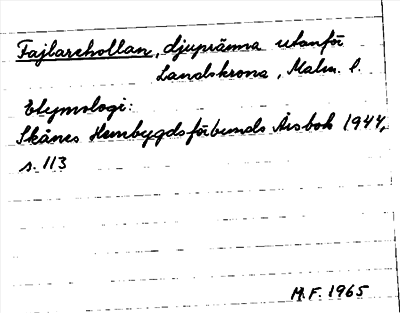 Fajlarehollan, djupränna utanför
Landskrona, Malm. l.
Etymologi:
Skånes Hembygdsförbunds Årsbok 1944,
s. 113
M.F. 1965